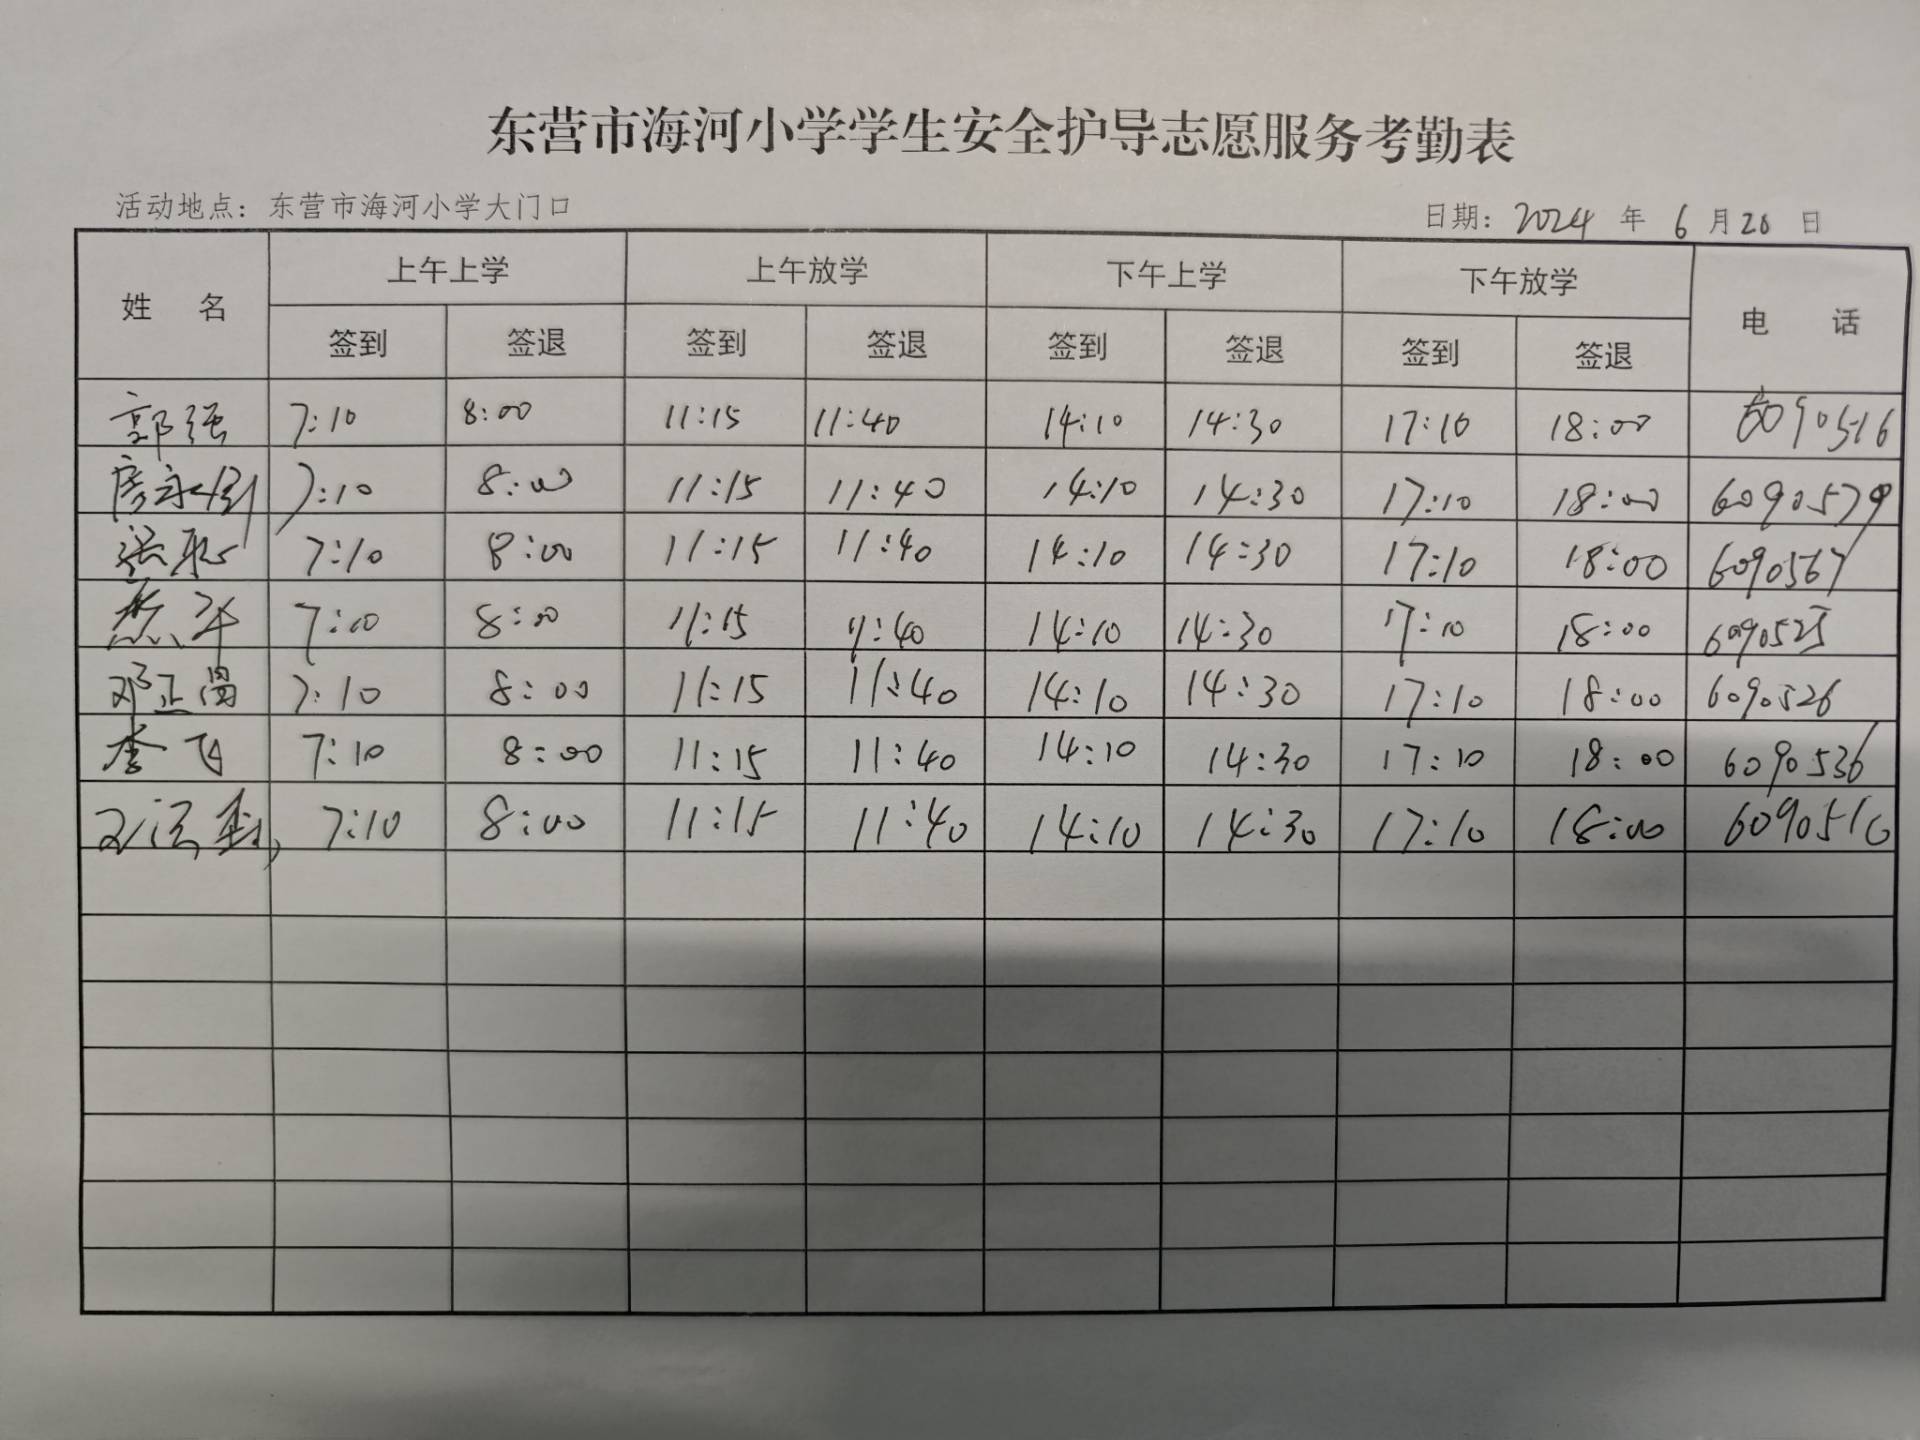 东营市海河小学学生安全护导志愿服务考勤表
活动地点：东营市海河小学大门口 日期：2024 年 6 月 20 日
姓 名 上午上学 上午放学 下午上学 下午放学 电 话
签到 签退 签到 签退 签到 签退 签到 签退
郭强 7:10 8:00 11:15 11:40 14:10 14:30 17:10 18:00 6090516
7:10 8:00 11:15 11:40 14:10 14:30 17:10 18:00 6090579
7:10 8:00 11:15 11:40 14:10 14:30 17:10 18:00 6090567
7:10 8:00 11:15 11:40 14:10 14:30 17:10 18:00 6090525
邓正 7:10 8:00 11:15 11:40 14:10 14:30 17:10 18:00 6090526
李飞 7:10 8:00 11:15 11:40 14:10 14:30 17:10 18:00 6090536
7:10 8:00 11:15 11:40 14:10 14:30 17:10 18:00 6090510